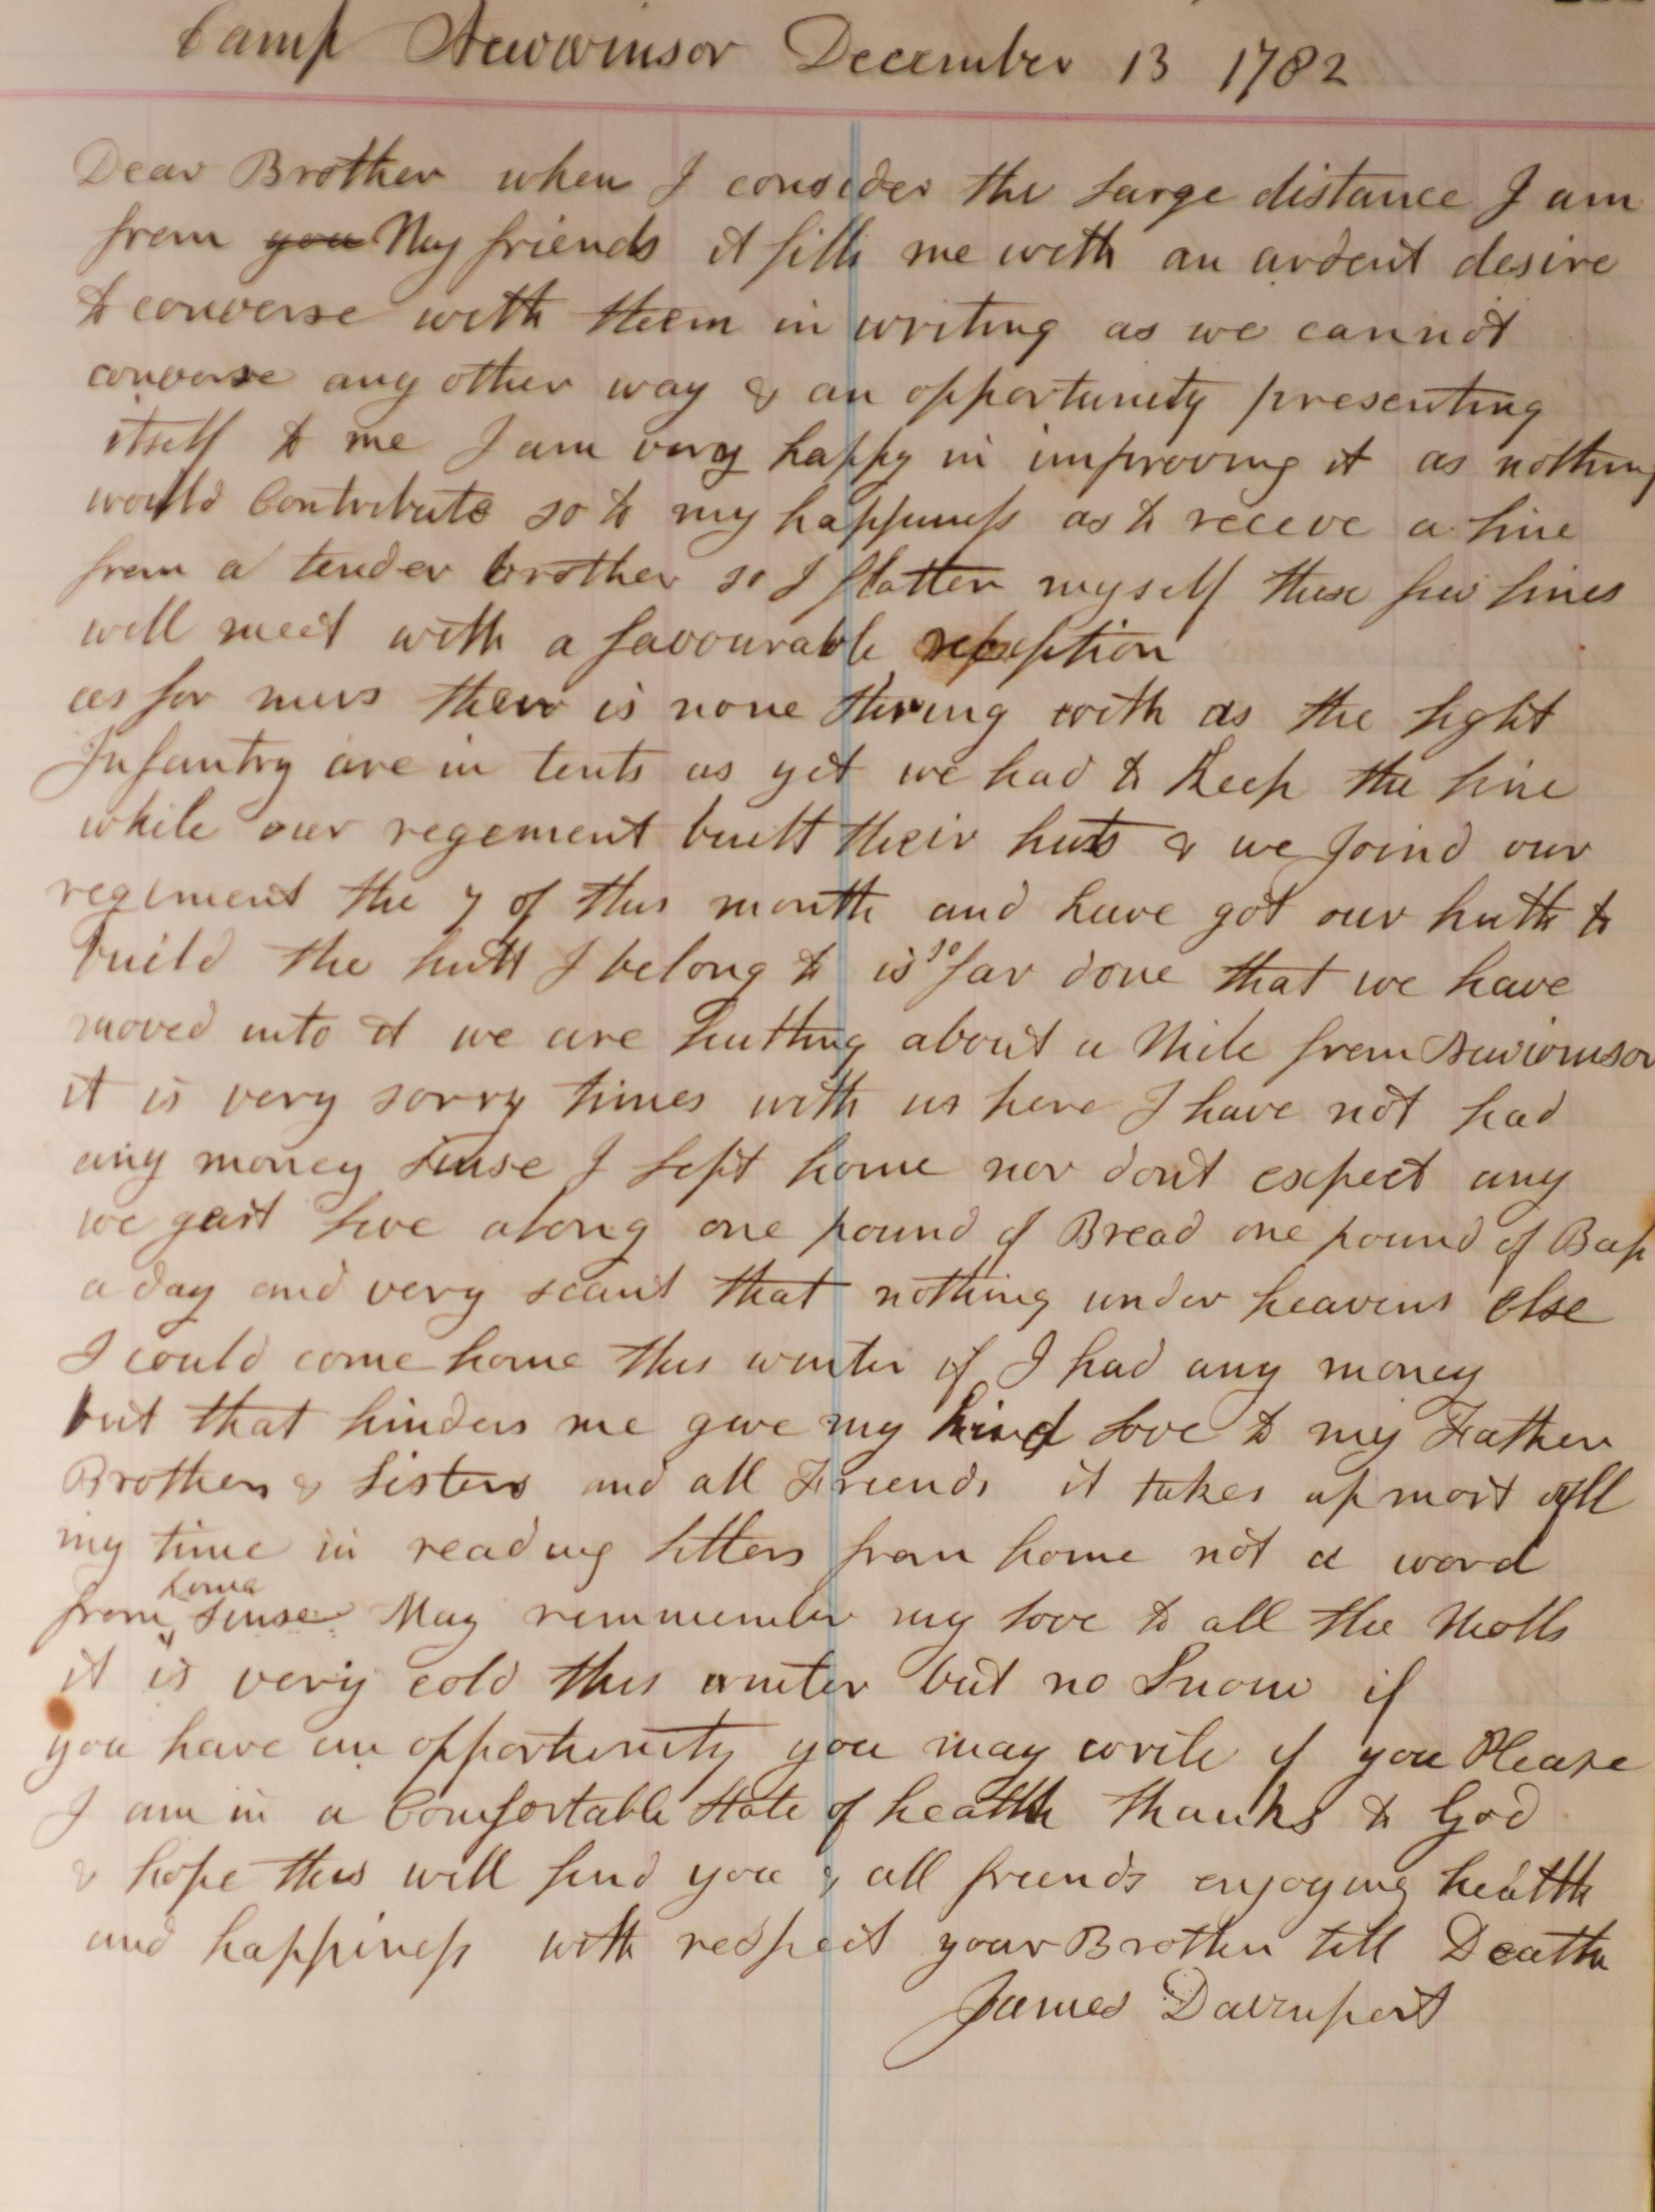 Camp Newwinsor December 13 1782
Dear Brother when I consider the large distance I am
from you My friends it fills me with an ardent desire
to converse with them in writing as we cannot
converse any other way & an opportunity presenting
itself to me I am very happy in improving it as nothing
would Contribute so to my happiness as to receve a line
from a tender brother so I flatter myself these few lines
will meet with a favourable reception
as for news there is none stiring with as the light
Infantry are in tents as yet we had to Keep the line
while our regement built their huts & we joind our
regiment the 7 of this month and have got our hutts to
build the hutt I belong to is so far done that we have
moved into it we are hutting about a Mile from Newwinsor
it is very sorry times with us here I have not had
any money sinse I left home nor dont expect any
we live along one pound of Bread one pound of
a day and very scant that nothing under heavens else
I could come home this winter if I had any money
but that hinders me give my kind love to my Father
Brothers & Sisters and all Friends it takes up most all
my time in reading letters from home not a word
from home sinse May remmember my love to all the
it is very cold this winter but no Snow if
you have an opportunity you may write if you Please
I am in a Comfortable State of health thanks to God
& hope this will find you & all friends enjoying health
and happiness with respect your Brother till Death
James Davenport